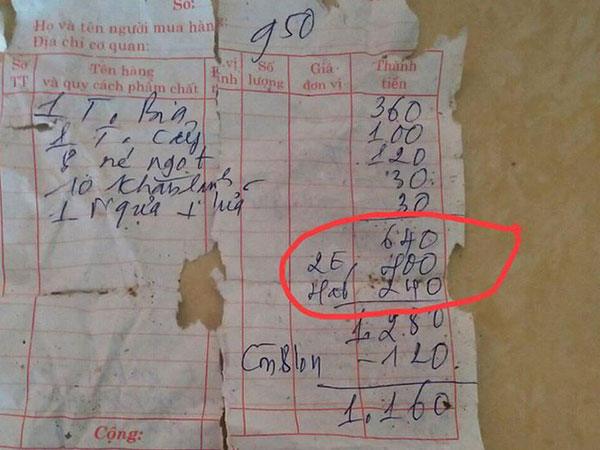 Số:
950
Họ và tên người mua hàng
Địa chỉ cơ quan:
Số TT Tên hàng và quy cách phẩm chất Số lượng Giá đơn vị Thành tiền
1 T. Bia 360
1 T. 100
8 né ngọt 120
10 Khăn lạnh 30
1 Ngựa + lửa 30
640
2E 400
240
1.280
Còn 8 lon -120
1.160
Cộng: